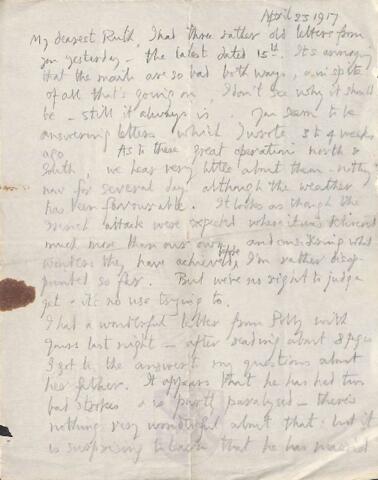 April 23 1917
My dearest Ruth, I had three rather old letters from
you yesterday – the latest dated 15th. It's annoying
that the mails are so bad both ways, & in spite
of all that's going on, I don't see why it should
be – still it always is. You seem to be
answering letters which I wrote 3 & 4 weeks
ago. As to these great operations north &
South, we hear very little about them – nothing
now for several days although the weather
has been favourable. It looks as though the
French attack were expected where it was delivered
much more than our own, and considering what
wonders they have achieved before, I'm rather disap-
pointed so far. But we've no right to judge
yet – it's no use trying to.
I had a wonderful letter from
yours last night – after reading about 8 pages
I got to the answer to my questions about
her father. It appears that he has had two
bad strokes & is partly paralysed – there's
nothing very wonderful about that: but it
is surprising to learn that he has married